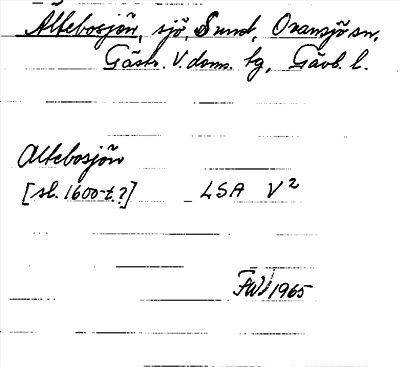 Ältebosjön, sjö, Sund, Ovansjö sn,
Gästr. V. doms. tg, Gävl. l.
Altebosjön
[sl. 1600-t.?] LSA V²
1965